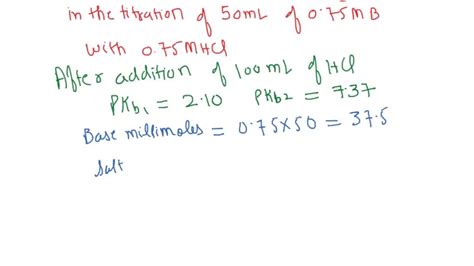 in the titration of 50mL of 0.75 M B
with 0.75M HCl
After addition of 100mL of HCl
PKb1 = 2.10 PKb2 = 7.37
Base millimoles = 0.75×50 = 37.5
Salt